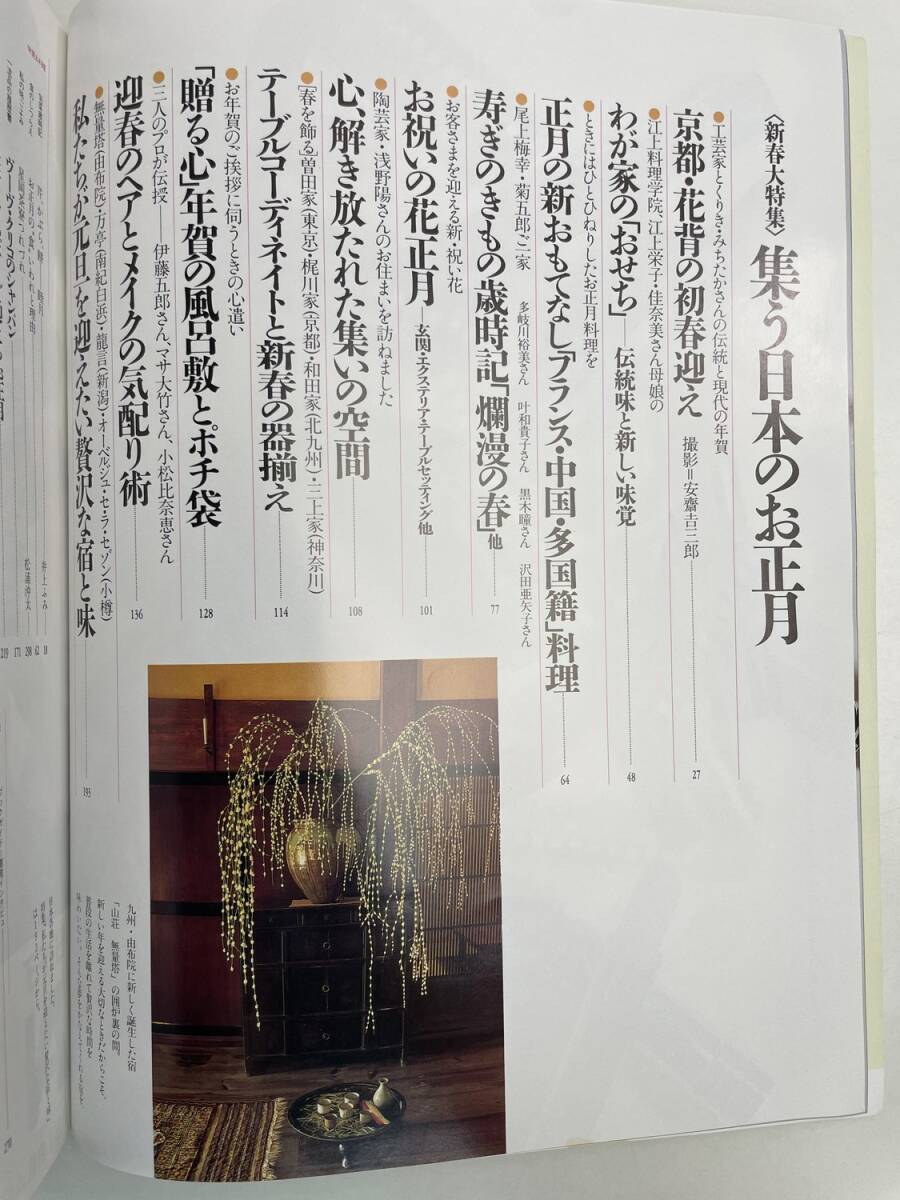 〈新春大特集〉集う日本のお正月
●工芸家とくりき・みちたかさんの伝統と現代の年賀
京都・花背の初春迎え 撮影=安齋吉三郎 27
●江上料理学院、江上栄子・佳奈美さん母娘の
わが家の「おせち」 伝統味と新しい味覚 48
●ときにはひとひねりしたお正月料理を
正月の新おもてなし「フランス・中国・多国籍」料理 64
●尾上梅幸・菊五郎ご一家 多岐川裕美さん 叶和貴子さん 黒木瞳さん 沢田亜矢子さん
寿ぎのきもの歳時記「爛漫の春」他 77
●お客さまを迎える新・祝い花
お祝いの花正月―玄関・エクステリア・テーブルセッティング他 101
●陶芸家・浅野陽さんのお住まいを訪ねました
心、解き放たれた集いの空間 108
●[春を飾る]曽田家(東京)・梶川家(京都)・和田家(北九州)・三上家(神奈川)
テーブルコーディネイトと新春の器揃え 114
●お年賀のご挨拶に伺うときの心遣い
「贈る心」年賀の風呂敷とポチ袋 128
●三人のプロが伝授―― 伊藤五郎さん、マサ大竹さん、小松比奈恵さん
迎春のヘアとメイクの気配り術 136
●無量塔(由布院)・方亭(南紀白浜)・龍言(新潟)・オーベルジュ・セ・ラ・セゾン(小樽)
私たちが元日を迎えたい贅沢な宿と味 193
九州・由布院に新しく誕生した宿
「山荘 無量塔」の囲炉裏の間。
新しい年を迎える大切なときだからこそ、
普段の生活を離れて贅沢な時間を
井上ふみ
松浦沖太
219 171 208 62 18